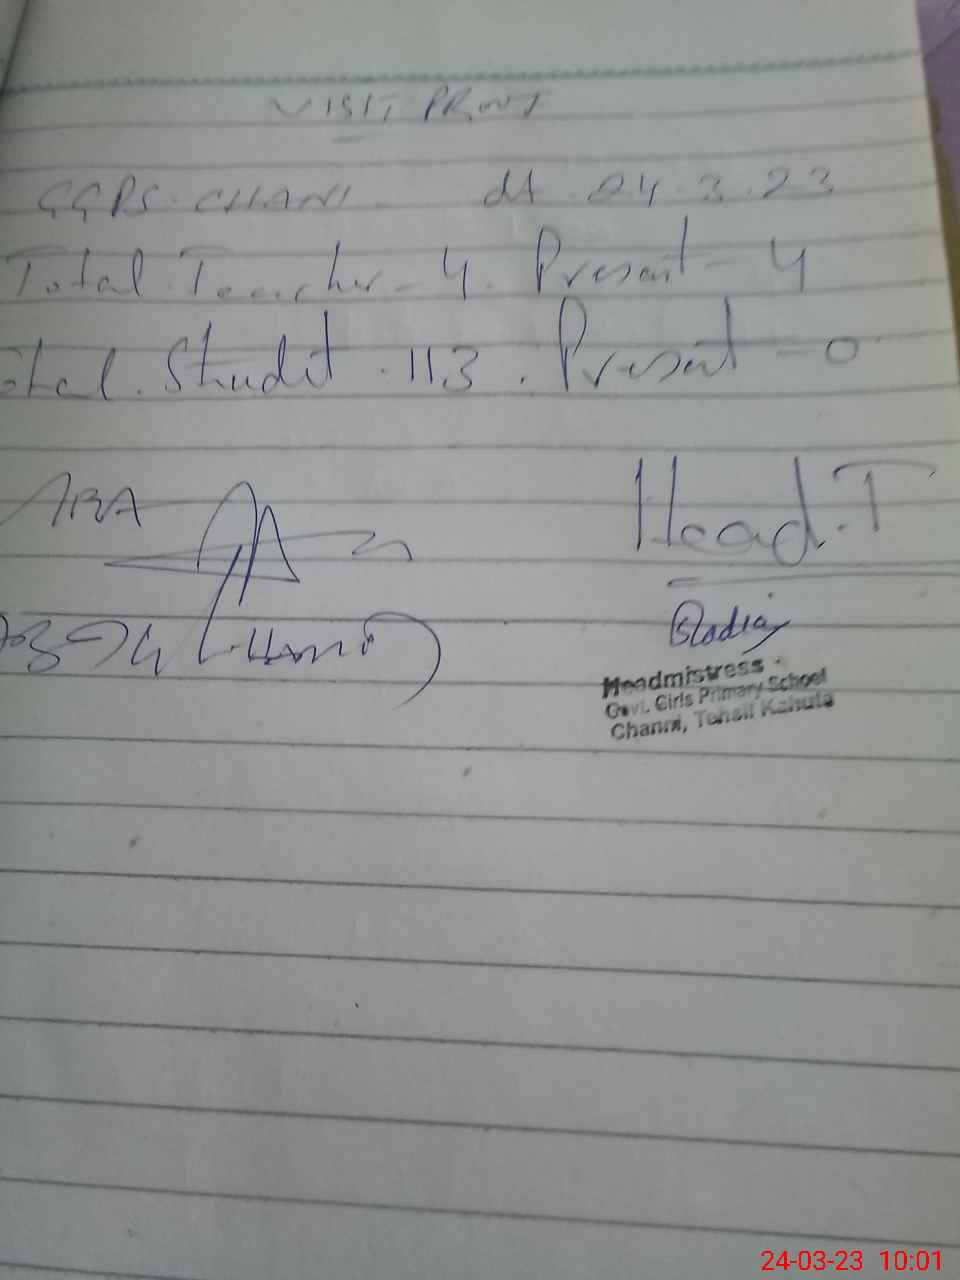 VISIT PROUT
GGPS. CHANI. dt 24.3.23
Total Teacher - 4. Present - 4
otal. Studit. 113. Present - 0
Head.T
Headmistress
Govt. Girls Primary School
Channi, Tehsil Kahuta
24-03-23 10:01